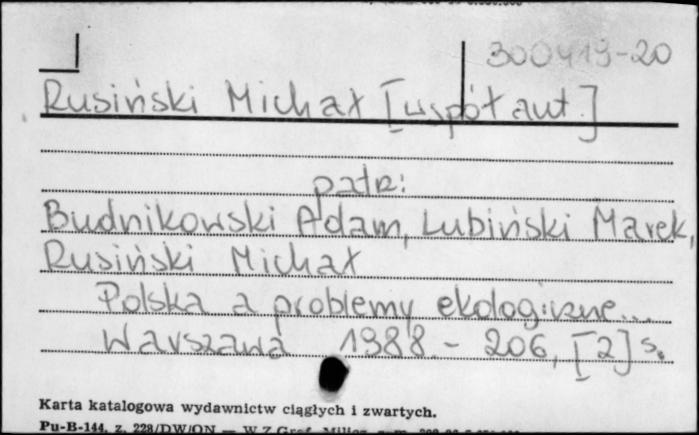 300419-20
Rusiński Michał [współaut.]
patrz:
Budnikowski Adam, Lubiński Marek,
Rusiński Michał
Polska a problemy ekologiczne...
Warszawa 1988. - 206, [2] s.
Karta katalogowa wydawnictw ciągłych i zwartych.
Pu-B-144, z. 228/DW/ON — W.Z.Graf.